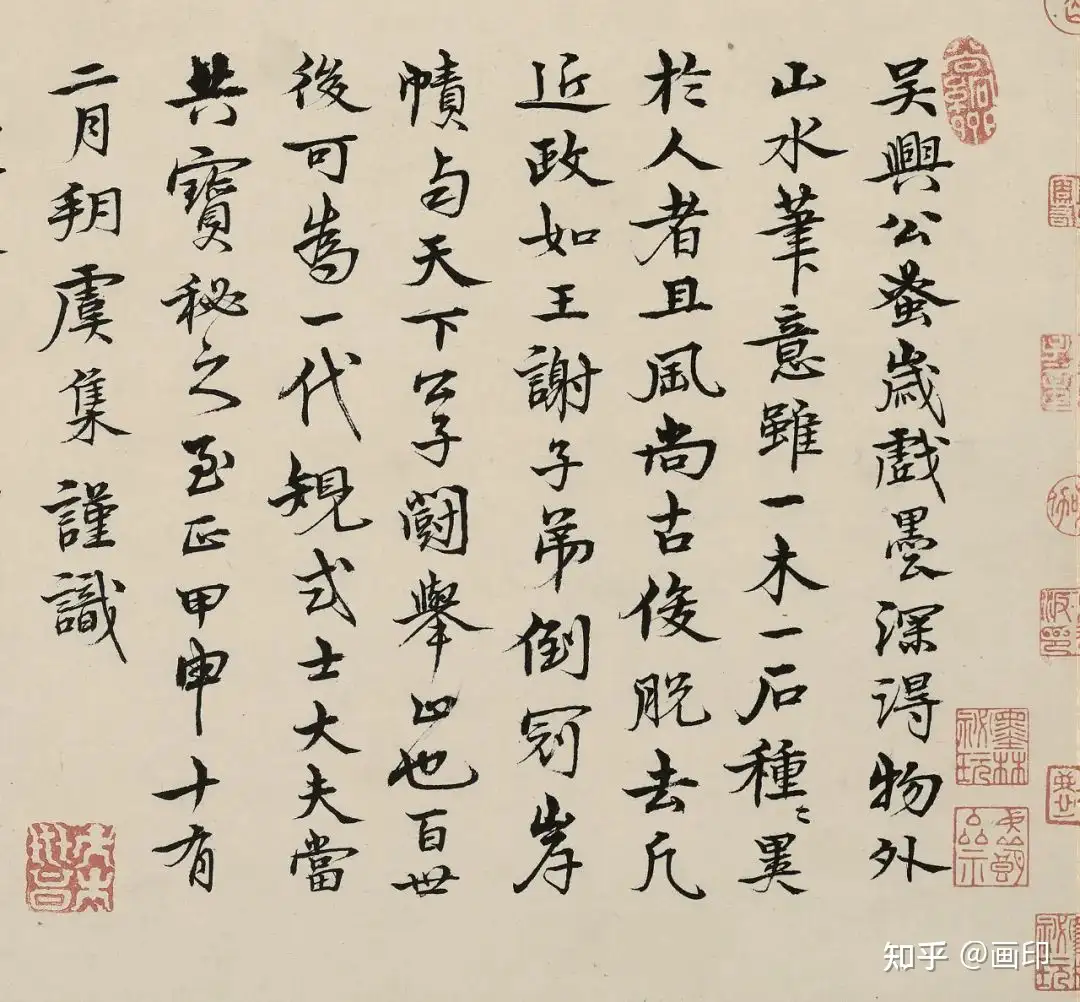 吳興公蚤歲戲墨深得物外
山水筆意雖一木一石種〻異
於人者且風尚古俊脫去凡
近政如王謝子弟倒冠岸
幘与天下公子鬭舉止也百世
後可為一代規式士大夫當
共寶秘之至正甲申十有
二月朔虞集謹識
墨林祕玩
知乎 @画印